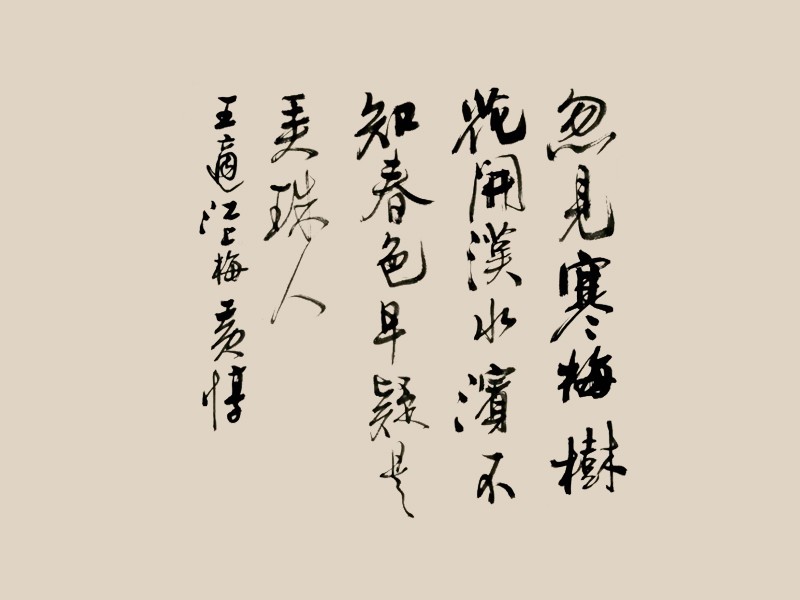 忽見寒梅樹
花開漢水濱不
知春色早疑是
弄珠人
王適江上梅黃惇